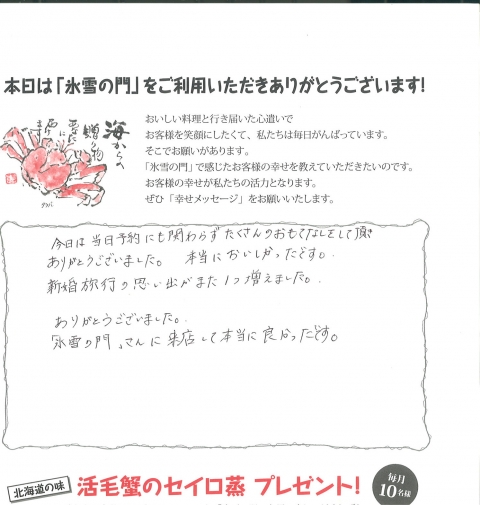 本日は「氷雪の門」をご利用いただきありがとうございます!
海からの
贈り物
あなたに
届けます
おいしい料理と行き届いた心遣いで
お客様を笑顔にしたくて、私たちは毎日がんばっています。
そこでお願いがあります。
「氷雪の門」で感じたお客様の幸せを教えていただきたいのです。
お客様の幸せが私たちの活力となります。
ぜひ「幸せメッセージ」をお願いいたします。
今日は当日予約にも関わらずたくさんのおもてなしをして頂き
ありがとうございました。 本当においしかったです。
新婚旅行の思い出がまた1つ増えました。
ありがとうございました。
氷雪の門、さんに来店して本当に良かったです。
北海道の味
活毛蟹のセイロ蒸 プレゼント!
毎月
10名様